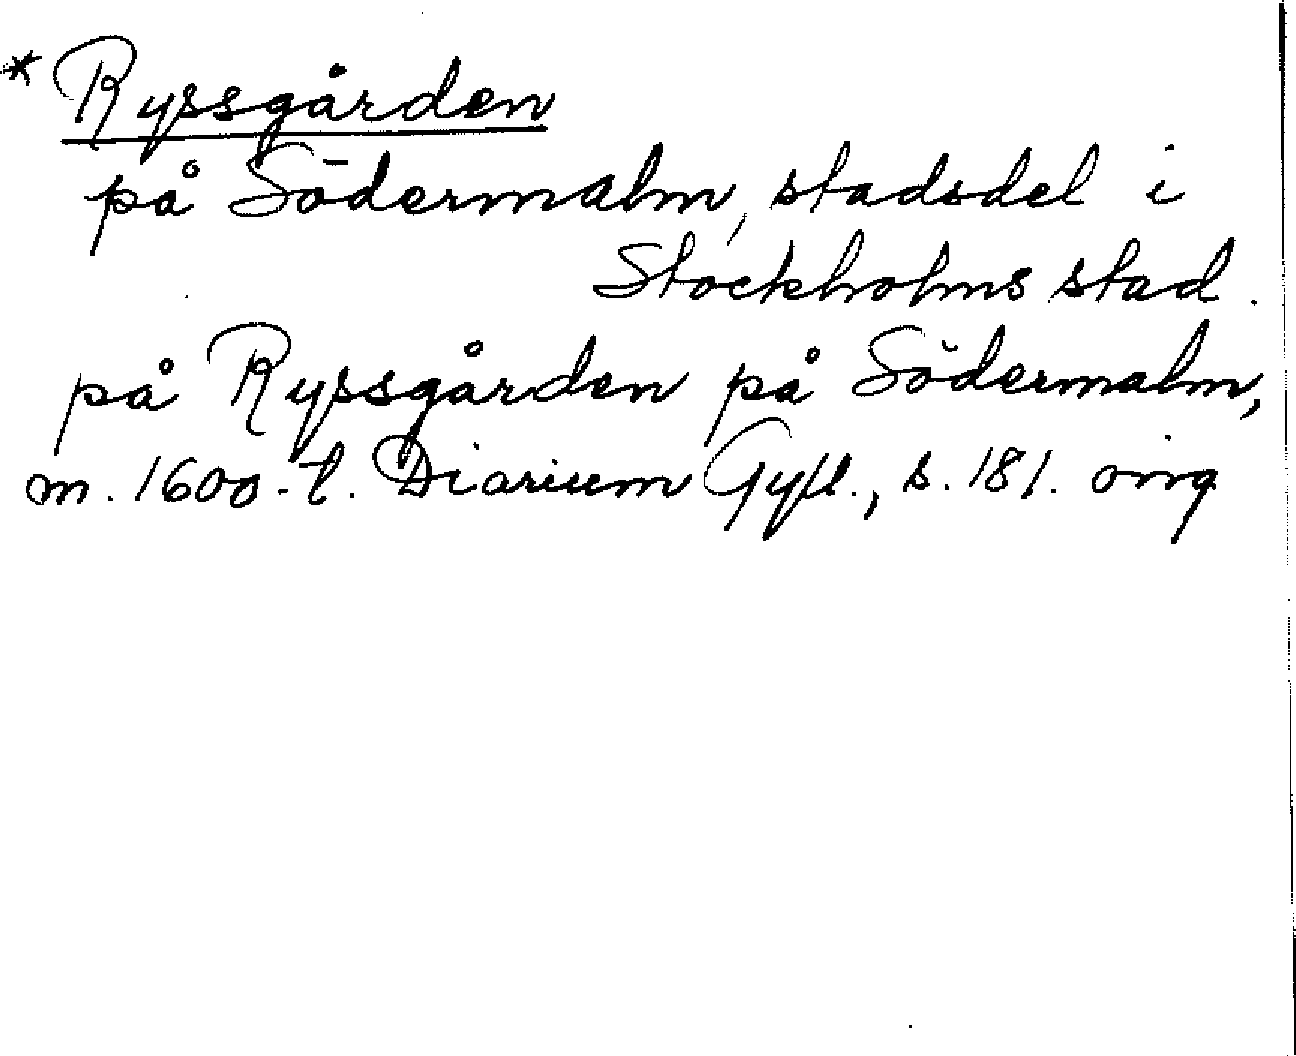 * Ryssgården
på Södermalm, stadsdel i
Stockholms stad.
på Ryssgården på Södermalm,
m. 1600-t. Diarium Gyll., s. 181. orig